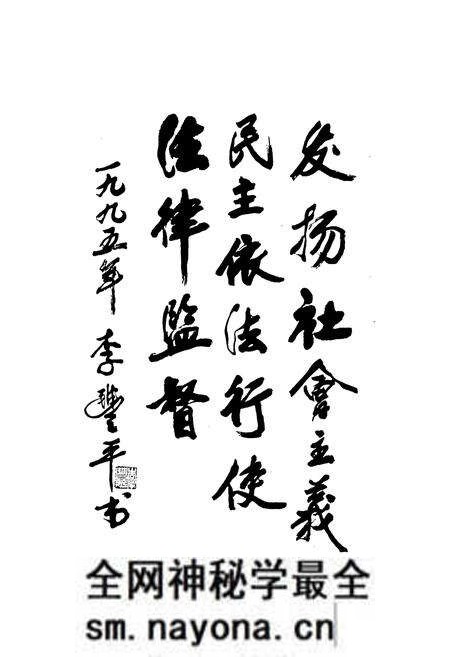 发扬社會主義
民主依法行使
法律監督
一九九五年 李豐平书
全网神秘学最全
sm.nayona.cn